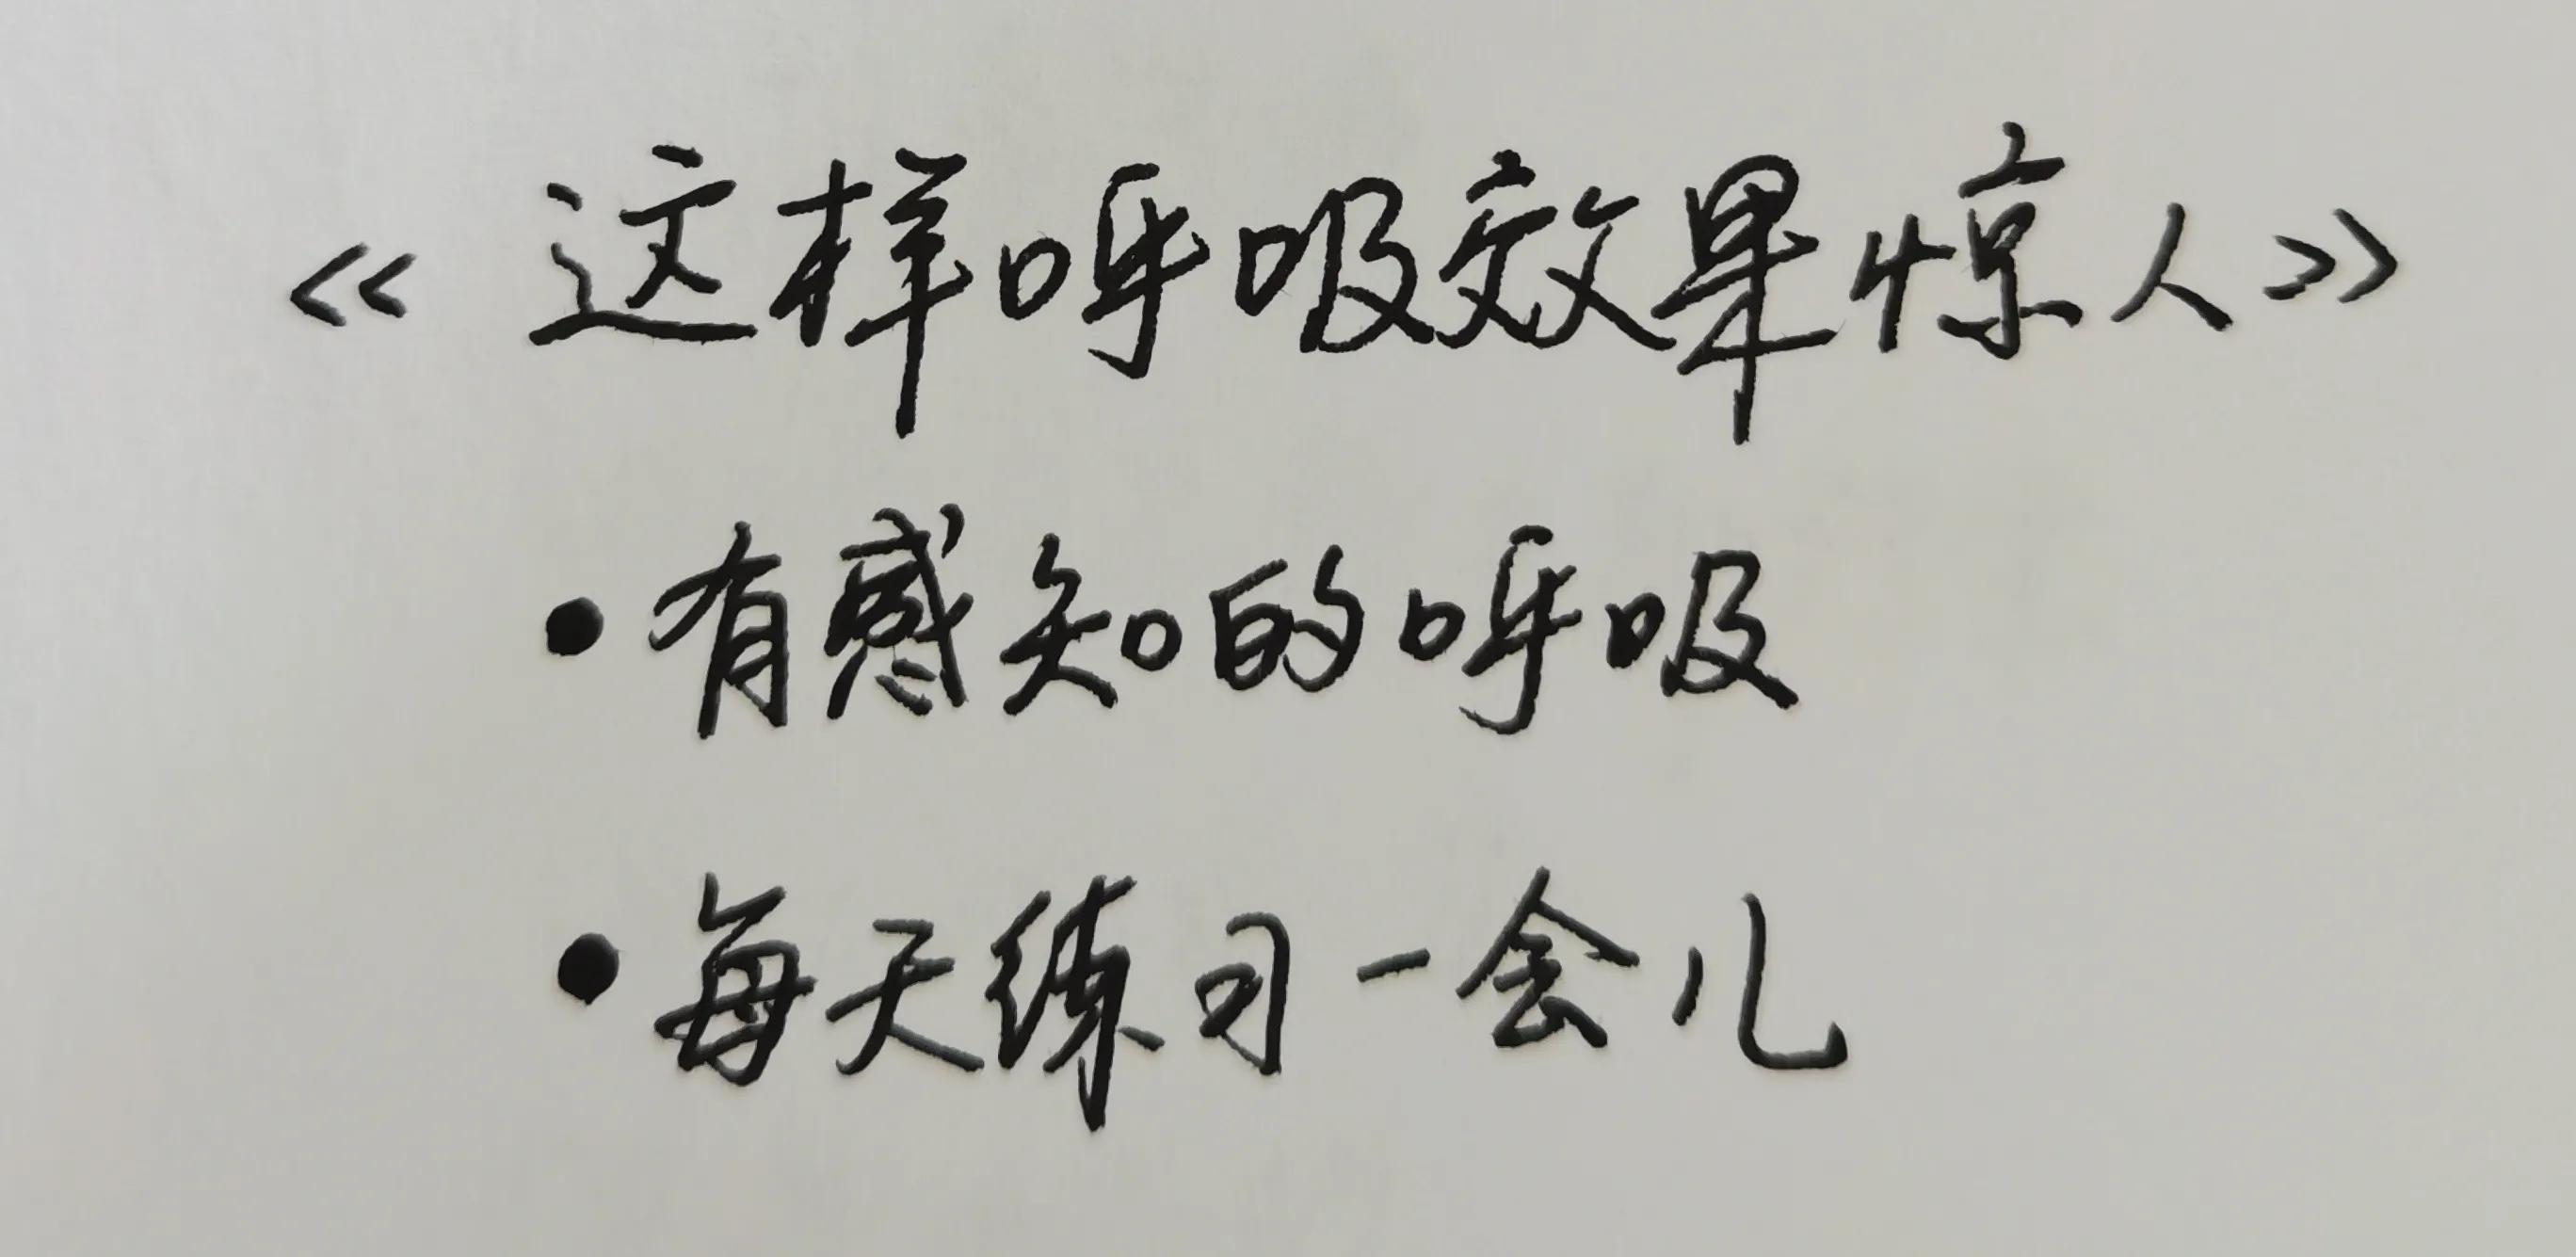 《这样呼吸效果惊人》
•有感知的呼吸
•每天练习一会儿